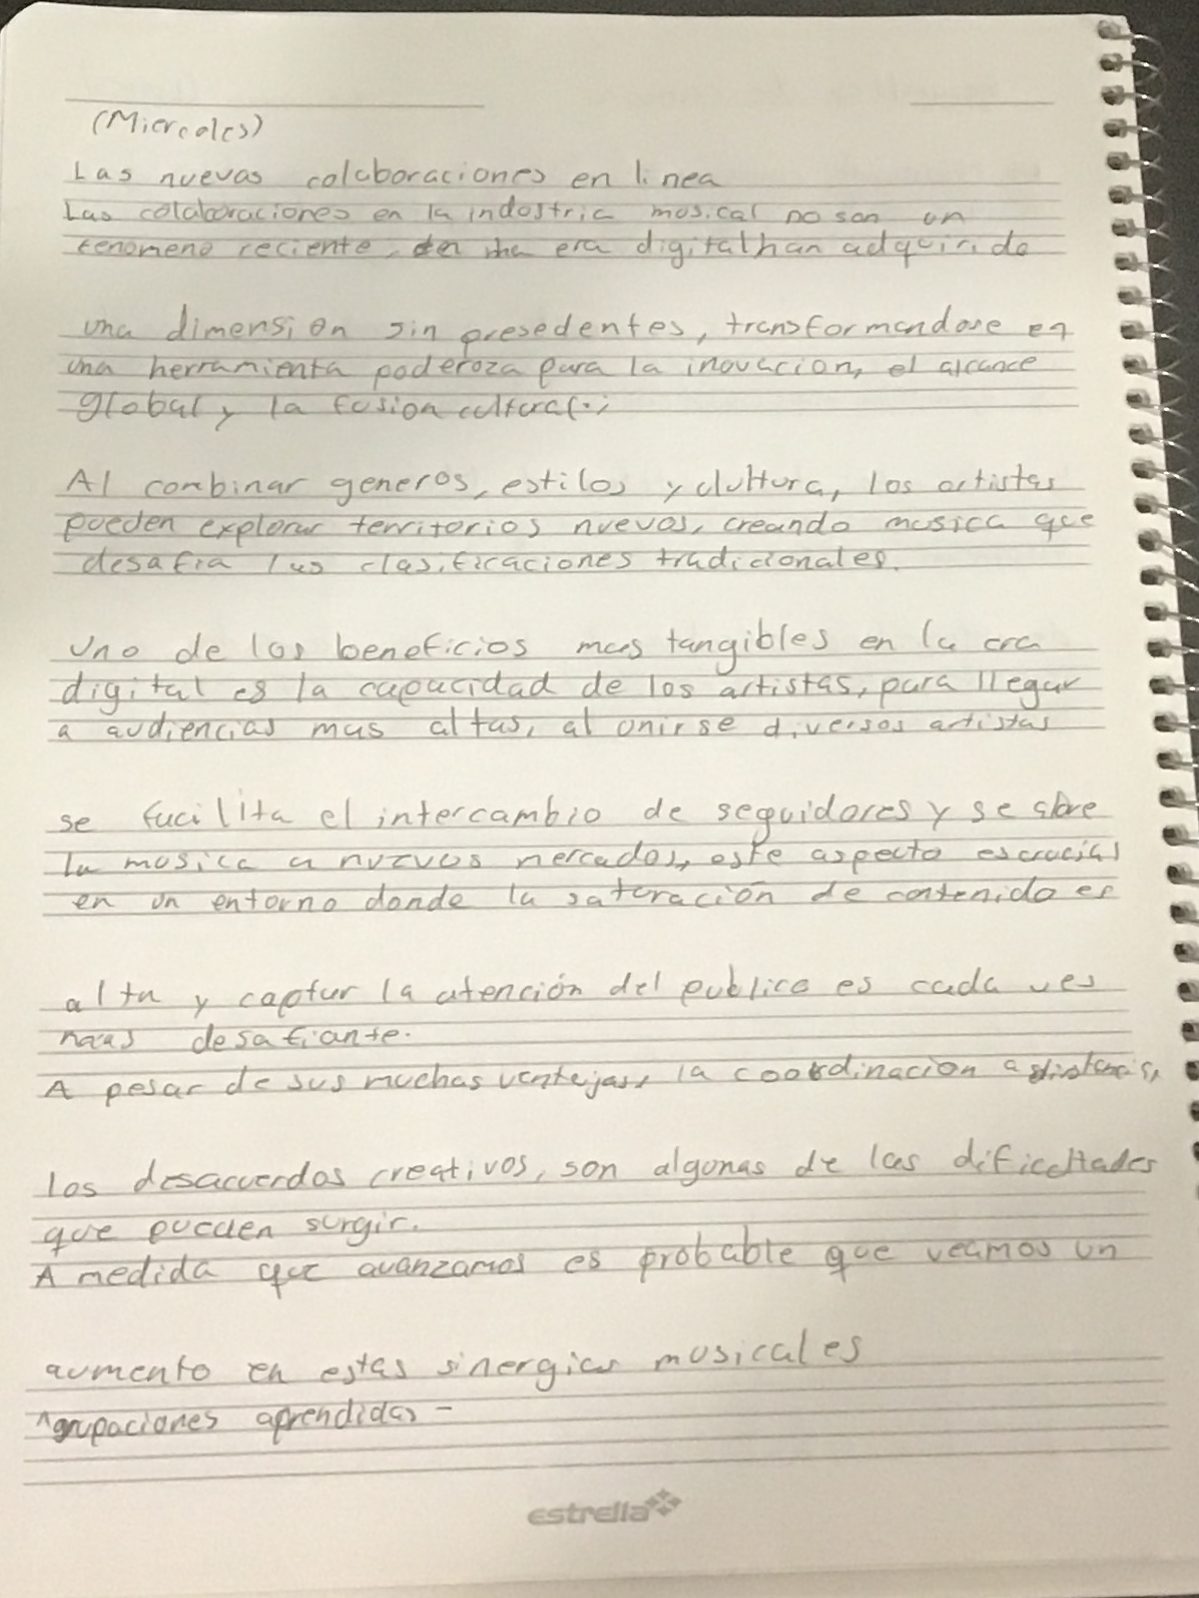 (Miercoles)
Las nuevas colaboraciones en linea
Las colaboraciones en la industria musical no son un
fenomeno reciente, en era digital han adquirido
una dimension sin presedentes, transformandose en
una herramienta poderoza para la inovacion, el alcance
global y la fusion cultural.
Al combinar generos, estilos y cultura, los artistas
pueden explorar territorios nuevos, creando musica que
desafia las clasificaciones tradicionales.
Uno de los beneficios mas tangibles en la era
digital es la capacidad de los artistas, para llegar
a audiencias mas altas, al unirse diversos artistas
se facilita el intercambio de seguidores y se abre
la musica a nuevos mercados, este aspecto es crucial
en un entorno donde la saturación de contenido es
alta y captar la atención del publico es cada ves
mas desafiante.
A pesar de sus muchas ventajas, la coordinacion a distancia,
los desacuerdos creativos, son algunas de las dificultades
que pueden surgir.
A medida que avanzamos es probable que veamos un
aumento en estas sinergias musicales
Agrupaciones aprendidas -
estrella